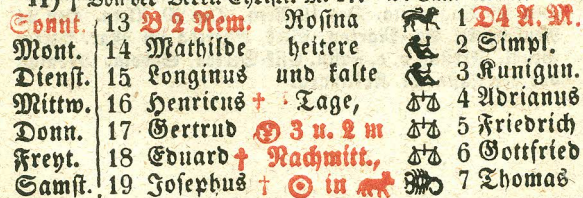 Sonnt. 13 B 2 Rem. Rosina 1 D4 A. M.
Mont. 14 Mathilde heitere 2 Simpl.
Dienst. 15 Longinus und kalte 3 Kunigun.
Mittw. 16 Henricus † Tage, 4 Adrianus
Donn. 17 Gertrud 3 u. 2 m 5 Friedrich
Freyt. 18 Eduard † Nachmitt., 6 Gottfried
Samst. 19 Josephus † ☉ in 7 Thomas